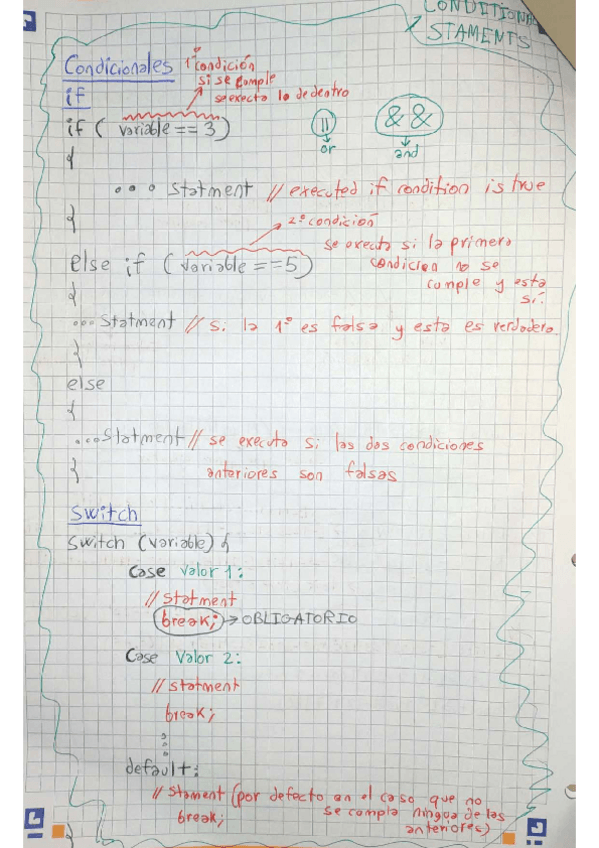 CONDITIONAL
STAMENTS
Condicionales
1º condición
si se cumple
se executa lo de dentro
if
if ( variable == 3)
||
or
&&
and
{
... statment // executed if condition is true
}
2º condición
se executa si la primera
condicion no se
cumple y esta
si.
else if (variable ==5)
{
... statment // si la 1º es falsa y esta es verdadera.
}
else
{
...statment // se executa si las dos condiciones
anteriores son falsas
}
Switch
Switch (variable) {
Case valor 1:
// statment
break; → OBLIGATORIO
Case Valor 2:
// statment
break;
default:
// stament (por defecto en el caso que no
se cumpla ningua de las
anteriores)
break;
}